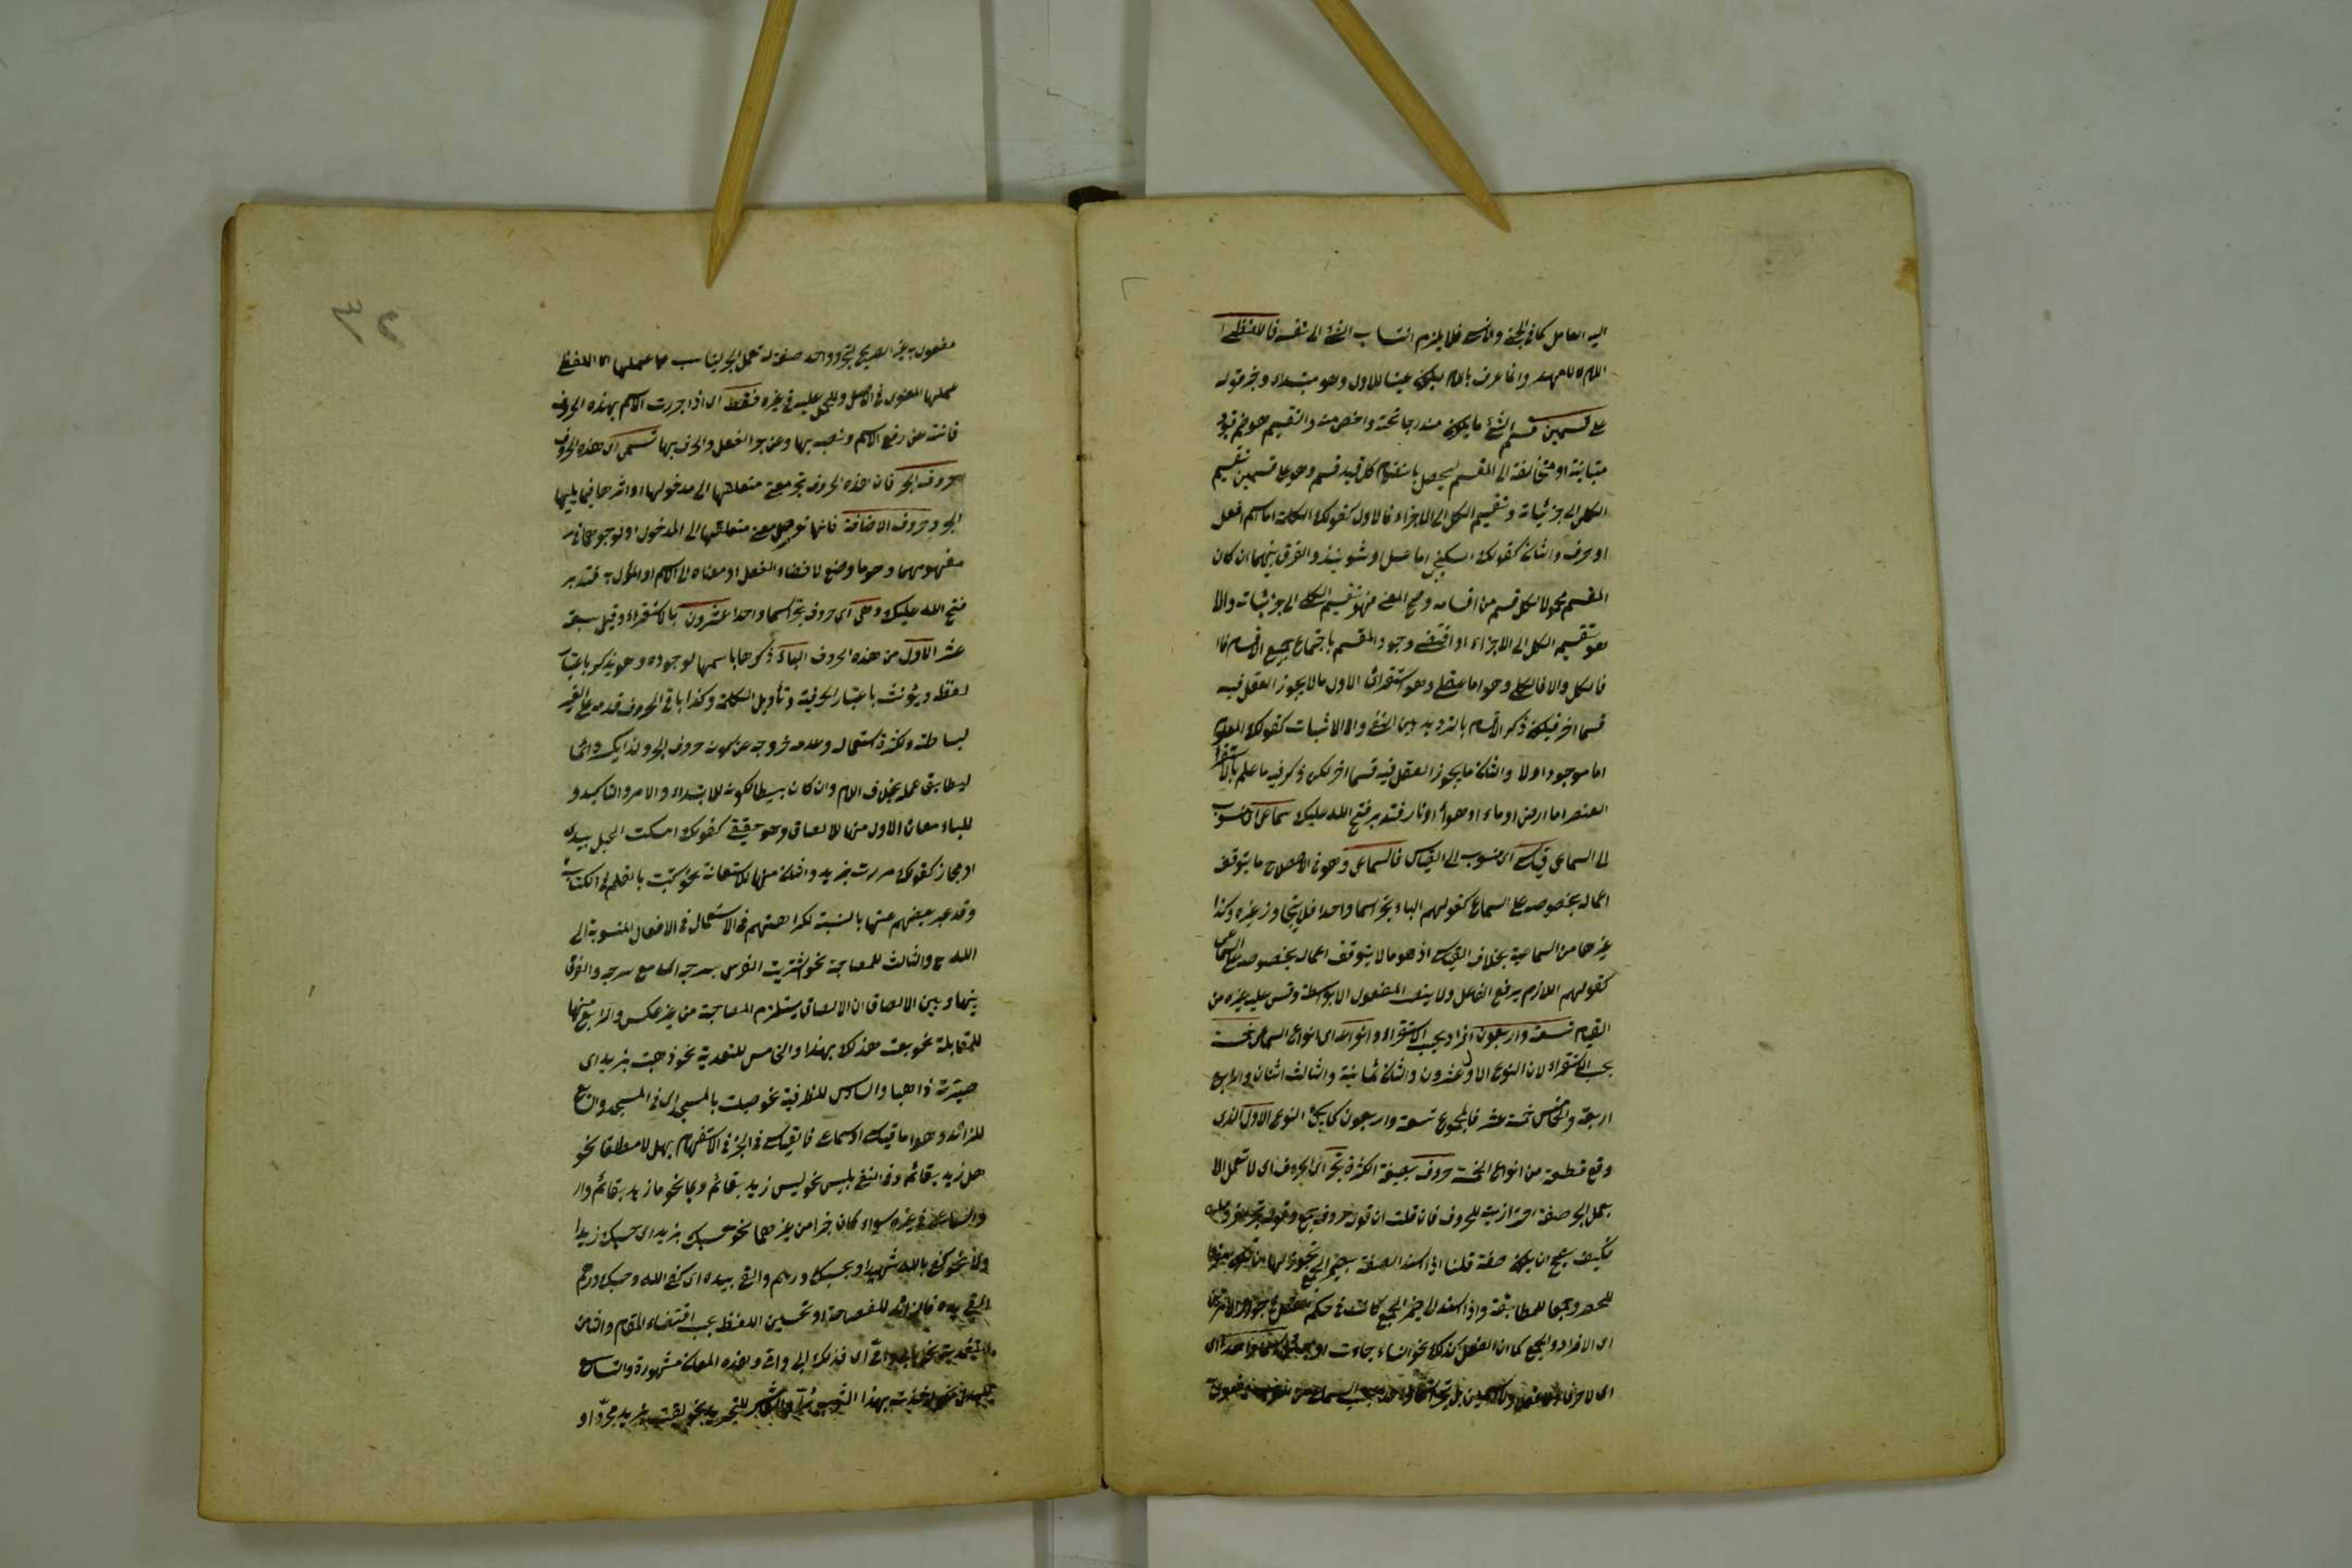 اليه العامل كما فى الجن والانس فلا يلزم انتساب الشئ الى نفسه فاللفظية
اللام للعهد وانما عرف باللام ليكون عينا للاول وهو مبتداء وخبره قوله
على قسمين قسم الشئ ما يكون مندرجا تحته واخص منه والتقسيم هو ضم قيود
متباينة او متخالفة الى المقسم ليحصل بانضمام كل قيد قسم وهو على قسمين تقسيم
الكلى الى جزئياته وتقسيم الكل الى الاجزاء فالاول كقولك الكلمة اما اسم او فعل
او حرف والثانى كقولك السكنجبين اما عسل او شونيذ والفرق بينهما ان كان
المقسم محمولا لكل قسم من اقسامه وصح المعنى فهو تقسيم الكلى الى جزئياته والا
فهو تقسيم الكل الى الاجزاء او اقتضى وجود المقسم باجتماع جميع الاقسام
فالكل والا فالكلى وهو اما عقلى وهو استقرائى الاول ما لا يجوز العقل فيه
قسما اخر فيكون ذكر الاقسام بالترديد بين النفى والاثبات كقولك المعلوم
اما موجود او لا والثانى ما يجوز العقل فيه قسما اخر لكن ذكر فيه ما علم بالاستقراء
العنصر اما ارض او ماء او هواء او نار فتدبر فتح الله عليك سماعى اى منسوب
الى السماعى قياسى اى منسوب الى القياس فالسماعى وهو فى الاصطلاح ما يتوقف
اعماله بخصوصه على السماع كقولهم الباء تجر اسما واحدا فلا يتجاوز غيره وكذا
غيرها من السماعية بخلاف القياسى اذ هو ما لا يتوقف اعماله بخصوصه على السماعى
كقولهم اللازم يرفع الفاعل ولا ينصب المفعول الا بواسطة وقس عليه غيره من
القياس تسعة واربعون افراد بحسب الاستقراء وانواعه اى انواع السماعى خمسة
بحسب الاستقراء لان النوع الاول عشرون والثانى ثمانية والثالث اثنان والرابع
اربعة والخامس خمسة عشر فالمجموع تسعة واربعون كما يجئ النوع الاول الذى
وقع قطعة من انواع الخمسة حروف بصيغة الكثرة تجر اى الحروف اى لا تعمل الا
بعمل الجر صفة احترازية للحروف فان قلت ان قوله حروف جمع وقوله تجر مفرد
فكيف يصح ان يكون صفة قلنا اذا اسند الصفة
وجمعا للمطابقة واذا اسند الى ضمير الجمع كانت فى حكم الفعل فى جواز الامرين
اى الافراد والجمع كما ان الفعل كذلك نحو النساء جاءت او
مفعول به غير الصريح لتجر وواحد صفة له عمل الجر يناسب
عملها المعنوى فى الاصل وللحمل عليه فى غيره فقط اى اذا جررت الاسم بهذه الحروف
فانته عن رفع الاسم ونصبه بها وعن جر الفعل والحرف بها تسمى اى هذه الحروف
حروف الجر فان هذه الحروف تجر معنى متعلقها الى مدخولها او اثرها فيما يليها
الجر وحروف الاضافة فانها توصل معنى متعلقها الى المدخول او لوجود معانيه
مفهومها وهو ما وضع لافضاء الفعل او معناه الى الاسم او المؤل به فتدبر
فتح الله عليك وهى اى حروف تجر اسما واحدا عشرون بالاستقراء وقيل سبعة
عشر الاول من هذه الحروف الباء ذكرها باسمها لوجوده وهو يذكر باعتبار
لفظه ويؤنث باعتبار الحرفية وتأويل الكلمة وكذا باقى الحروف قدمه على الغير
لبساطته وكثرة استعماله وعدم خروجه عن كونه حروف الجر ولذا يكسر دائما
ليطابق عمله بخلاف اللام وان كان بسيطا لكونه للابتداء والامر والتاكيد و
للباء معان الاول منها للالصاق وهو حقيقى كقولك امسكت الحبل بيدى
او مجاز كقولك مررت بزيد والثانى منها للاستعانة نحو كتبت بالقلم اى الكتابة
وقد عبر بعضهم عنها بالسببية لكراهتهم فى الاستعمال فى الافعال المنسوبة الى
الله ج والثالث للمصاحبة نحو اشتريت الفرس بسرجه اى مع سرجه والفرق
بينهما وبين الالصاق ان الالصاق يستلزم المصاحبة من غير عكس والرابع منها
للمقابلة نحو بعت هذا بهذا والخامس للتعدية نحو ذهبت بزيد اى
صيرته ذاهبا والسادس للظرفية نحو صليت بالمسجد اى فى المسجد والسابع
للزائد وهو اما قياسى او سماعى فالقياسى فى الخبر فى الاستفهام بهل لا مطلقا نحو
هل زيد بقائم وفى النفى بليس نحو ليس زيد بقائم وبما نحو ما زيد بقائم
والسماعى فى غيره سواء كان خبرا من غيرهما نحو حسبك بزيد اى حسبك زيد
نحو كفى بالله شهيدا وبحسبك درهم والقى بيده اى كفى الله وحسبك درهم
والقى يده فالزائد للفصاحة او تحسين اللفظ بحسب اقتضاء المقام والثامن
للتفدية نحو بابى وامى اى فديك ابى وامى وهذه المعانى مشهورة والتاسع